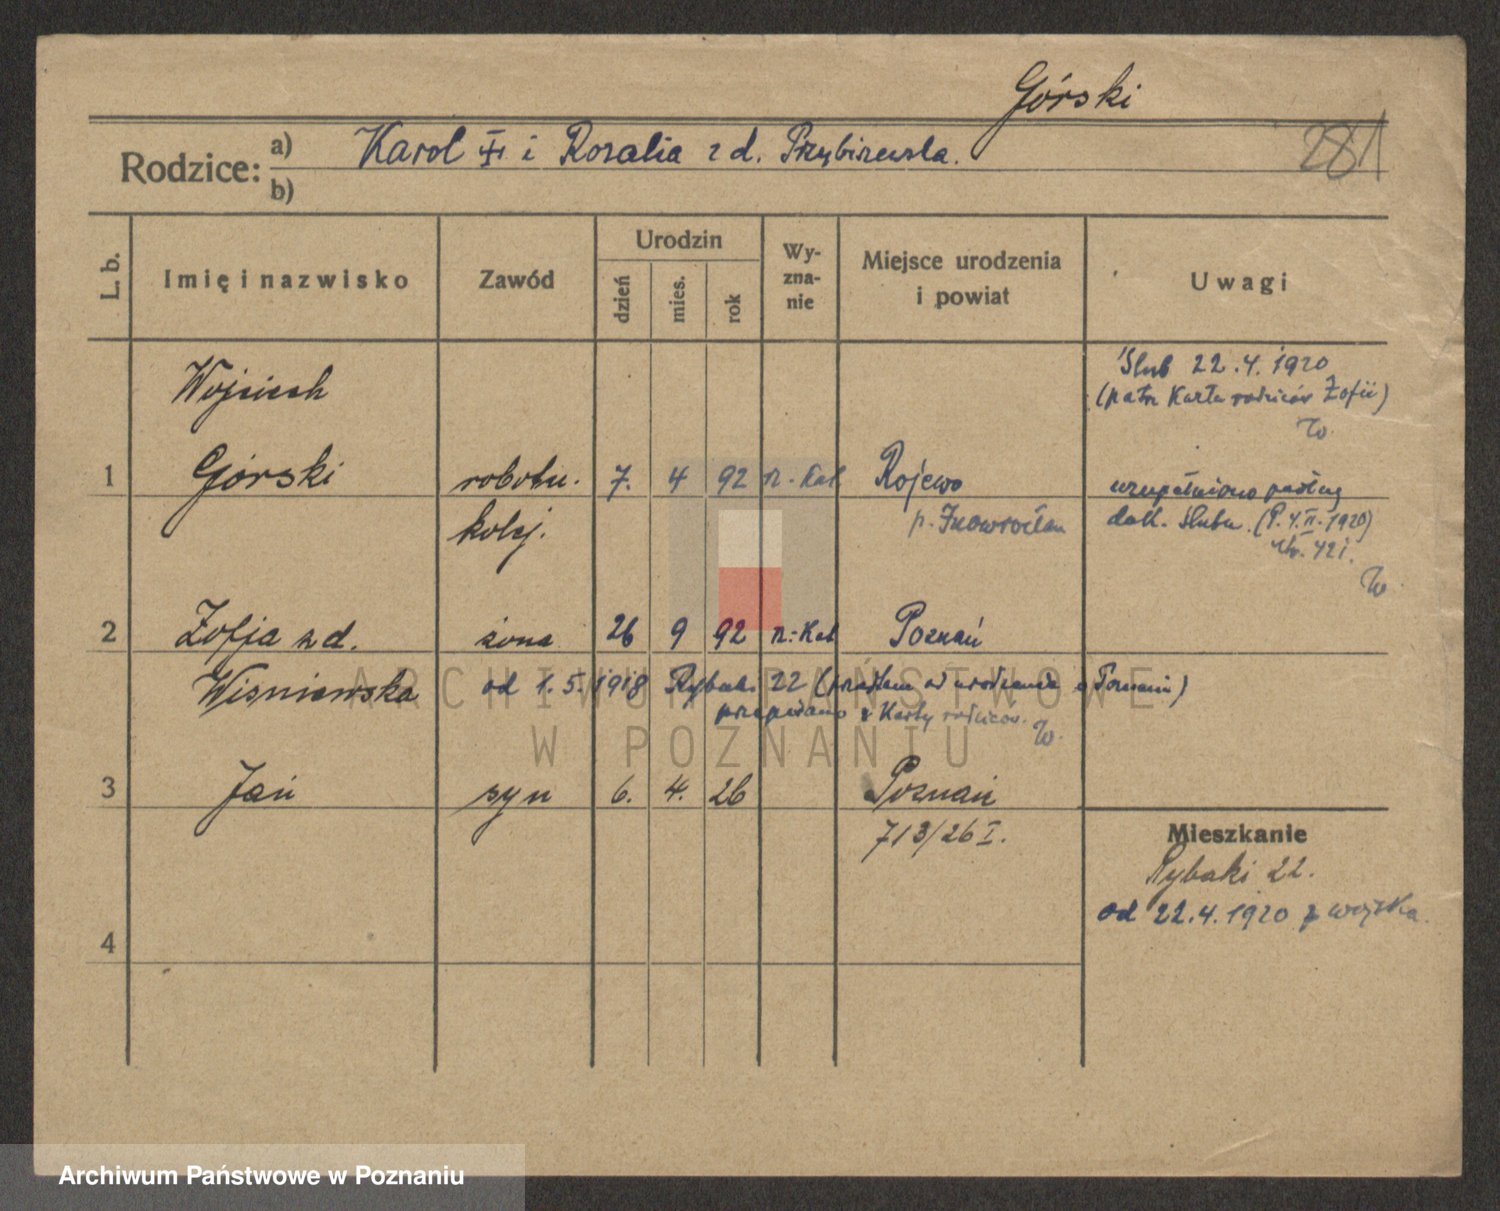 Górski
281
Rodzice: a) Karol i Rozalia z d. Przybiszewska.
b)
L. b.
Imię i nazwisko
Zawód
Urodzin
dzień
mies.
rok
Wy-
zna-
nie
Miejsce urodzenia
i powiat
Uwagi
Wojciech
Ślub 22.4.1920
(patrz Karta rodziców Zofii)
1 Górski robotn. 7. 4 92 r.-Kat Rojewo
uzupełniono według
kolej. p. Inowrocław
dok. Ślubu. (P. 4.II.1920)
Nr. 421.
2 Zofja z d. żona 26 9 92 r.-Kat Poznań
Wiśniewska od 1.5.1918 Rybaki 22 (przedtem od urodzenia w Poznaniu)
przepisano z Karty rodziców.
ARCHIWUM PAŃSTWOWE
W POZNANIU
3 Jan syn 6. 4. 26 Poznań
713/26 I.
Mieszkanie
Rybaki 22.
od 22.4.1920 z wojska.
4
Archiwum Państwowe w Poznaniu